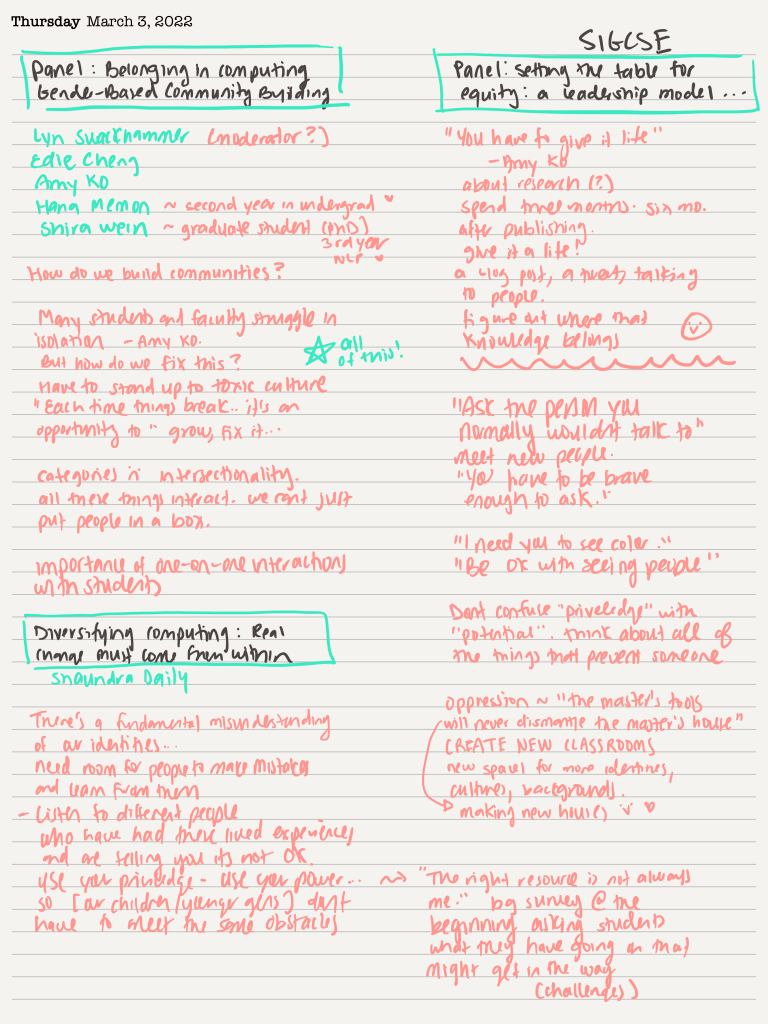 Thursday March 3, 2022
SIGCSE
Panel: Belonging in computing
Gender-Based Community Building
Lyn Swackhammer (moderator?)
Edie Cheng
Amy Ko
Hana Memon ~ second year in undergrad ♥
Shira Wein ~ graduate student (PhD)
3rd year
NLP ♥
How do we build communities?
Many students and faculty struggle in
isolation - Amy Ko.
But how do we fix this?
☆ all
of this!
Have to stand up to toxic culture
"Each time things break.. it's an
opportunity to" grow, fix it...
categories 'n' intersectionality.
all these things interact. we can't just
put people in a box.
importance of one-on-one interactions
with students
Diversifying computing: Real
change must come from within
Shaundra Daily
There's a fundamental misunderstanding
of our identities...
need room for people to make mistakes
and learn from them
- Listen to different people
who have had these lived experiences
and are telling you it's not OK.
use your priviledge - use your power...
so [our children/younger gens] don't
have to meet the same obstacles
Panel: setting the table for
equity: a leadership model ...
"You have to give it life"
- Amy Ko
about research (?)
spend three months. six mo.
after publishing.
give it a life!
a blog post, a tweet, talking
to people.
figure out where that
knowledge belongs
"Ask the person you
normally wouldn't talk to"
meet new people.
"You have to be brave
enough to ask."
"I need you to see color."
"Be OK with seeing people"
Don't confuse "priveledge" with
"potential". think about all of
the things that prevent someone
oppression ~ "the master's tools
will never dismantle the master's house"
CREATE NEW CLASSROOMS
new spaces for more identities,
cultures, backgrounds.
making new houses ♥
"The right resource is not always
me." bg survey @ the
beginning asking students
what they have going on that
might get in the way
(challenges)